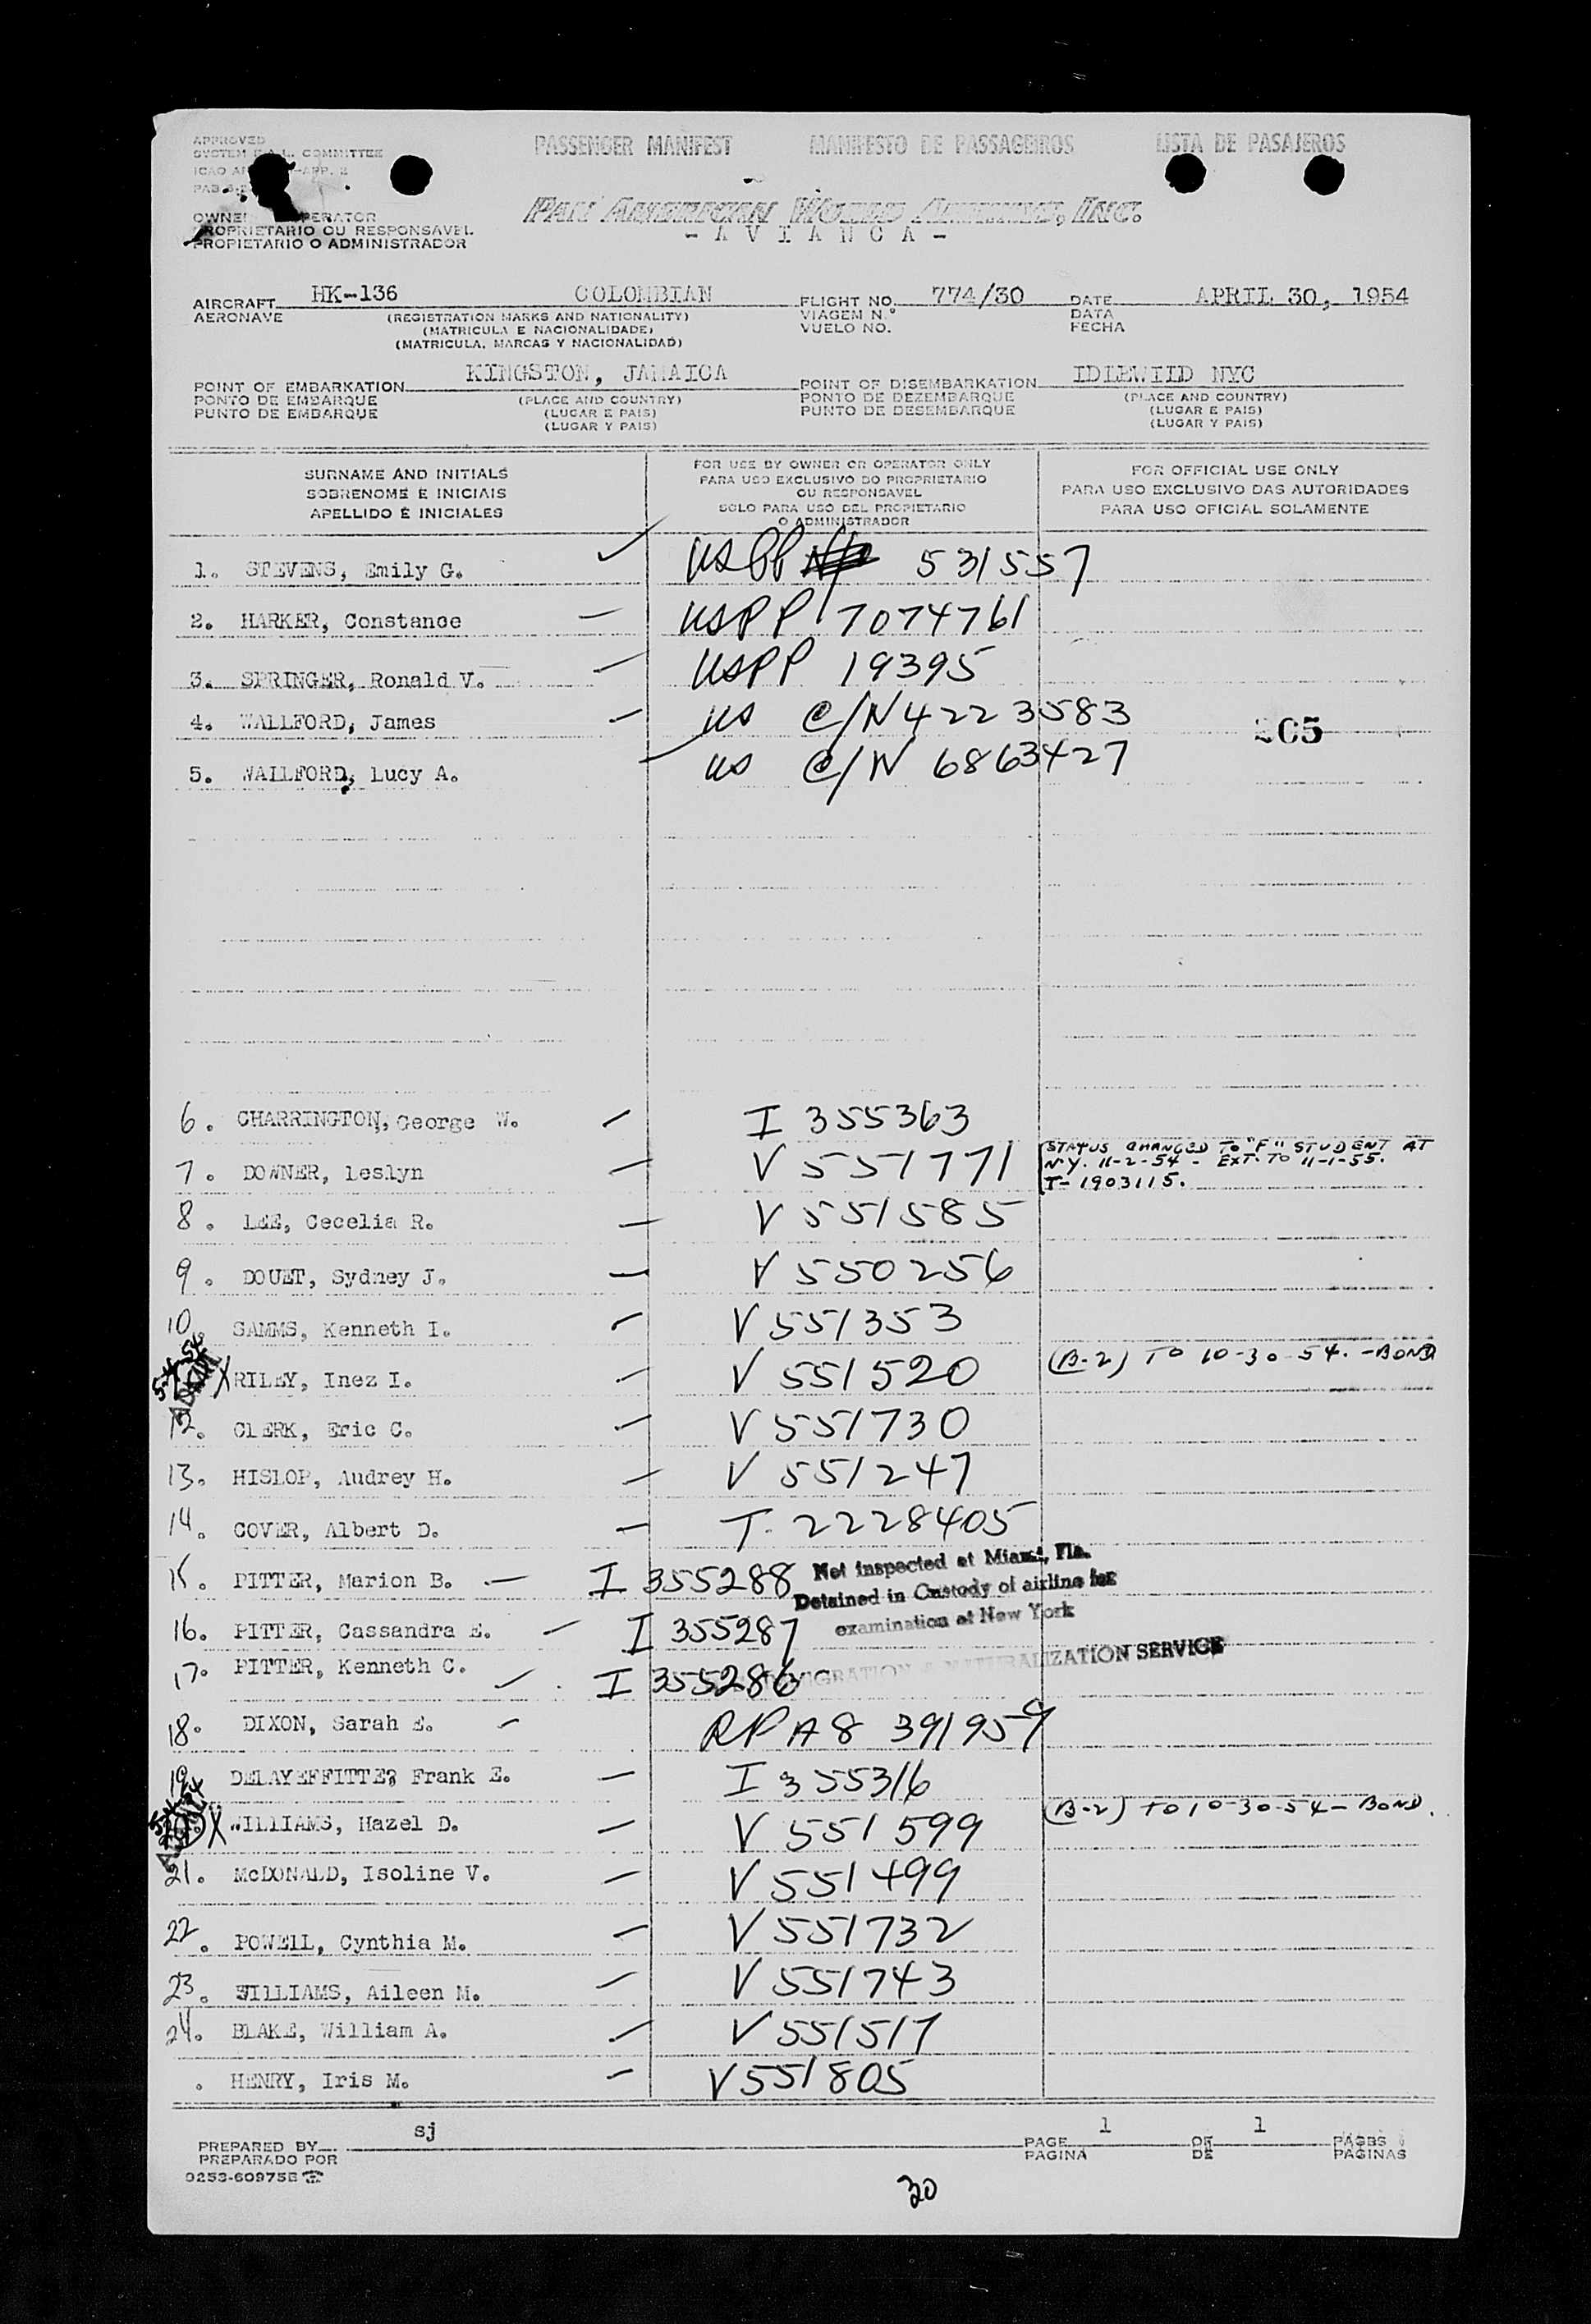 APPROVED
SYSTEM F.A.L. COMMITTEE
PASSENGER MANIFEST MANIFESTO DE PASSAGEIROS LISTA DE PASAJEROS
OWNER OPERATOR
PROPRIETARIO OU RESPONSAVEL
PROPIETARIO O ADMINISTRADOR
PAN AMERICAN WORLD AIRWAYS, INC.
- A V I A N C A -
AIRCRAFT HK-136 COLOMBIAN FLIGHT NO. 774/30 DATE APRIL 30, 1954
AERONAVE (REGISTRATION MARKS AND NATIONALITY) VIAGEM N.º DATA
(MATRICULA E NACIONALIDADE) VUELO NO. FECHA
(MATRICULA, MARCAS Y NACIONALIDAD)
POINT OF EMBARKATION KINGSTON, JAMAICA POINT OF DISEMBARKATION IDLEWIID NYC
PONTO DE EMBARQUE (PLACE AND COUNTRY) PONTO DE DEZEMBARQUE (PLACE AND COUNTRY)
PUNTO DE EMBARQUE (LUGAR E PAIS) PUNTO DE DESEMBARQUE (LUGAR E PAIS)
(LUGAR Y PAIS) (LUGAR Y PAIS)
SURNAME AND INITIALS FOR USE BY OWNER OR OPERATOR ONLY FOR OFFICIAL USE ONLY
SOBRENOME E INICIAIS PARA USO EXCLUSIVO DO PROPRIETARIO PARA USO EXCLUSIVO DAS AUTORIDADES
OU RESPONSAVEL
APELLIDO E INICIALES SOLO PARA USO DEL PROPIETARIO PARA USO OFICIAL SOLAMENTE
O ADMINISTRADOR
1. STEVENS, Emily G. USPP 531557
2. HARKER, Constance USPP 7074761
3. SPRINGER, Ronald V. USPP 19395
4. WALLFORD, James US C/N 4223583
265
5. WALLFORD, Lucy A. US C/N 6863427
6. CHARRINGTON, George W. I 355363
7. DOWNER, Leslyn V 551771 STATUS CHANGED TO "F" STUDENT AT
N.Y. 11-2-54 - EXT. TO 11-1-55.
T-1903115.
8. LEE, Cecelia R. V 551585
9. DOUET, Sydney J. V 550256
10. SAMMS, Kenneth I. V 551353
X RILEY, Inez I. V 551520 (B-2) TO 10-30-54. -BOND
12. CLERK, Eric C. V 551730
13. HISLOP, Audrey H. V 551247
14. COVER, Albert D. T. 2228405
15. PITTER, Marion B. I 355288
Not inspected at Miami, Fla.
Detained in Custody of airline for
examination at New York
16. PITTER, Cassandra E. I 355287
IMMIGRATION & NATURALIZATION SERVICE
17. PITTER, Kenneth C. I 355286
18. DIXON, Sarah E. RP A8 391959
19. DELAYEFFITTE, Frank E. I 355316
X WILLIAMS, Hazel D. V 551599 (B-2) TO 10-30-54 - BOND.
21. McDONALD, Isoline V. V 551499
22. POWELL, Cynthia M. V 551732
23. WILLIAMS, Aileen M. V 551743
24. BLAKE, William A. V 551517
. HENRY, Iris M. V 551805
PREPARED BY sj PAGE 1 OF 1 PAGES
PREPARADO POR PAGINA DE PAGINAS
0253-60975B
30